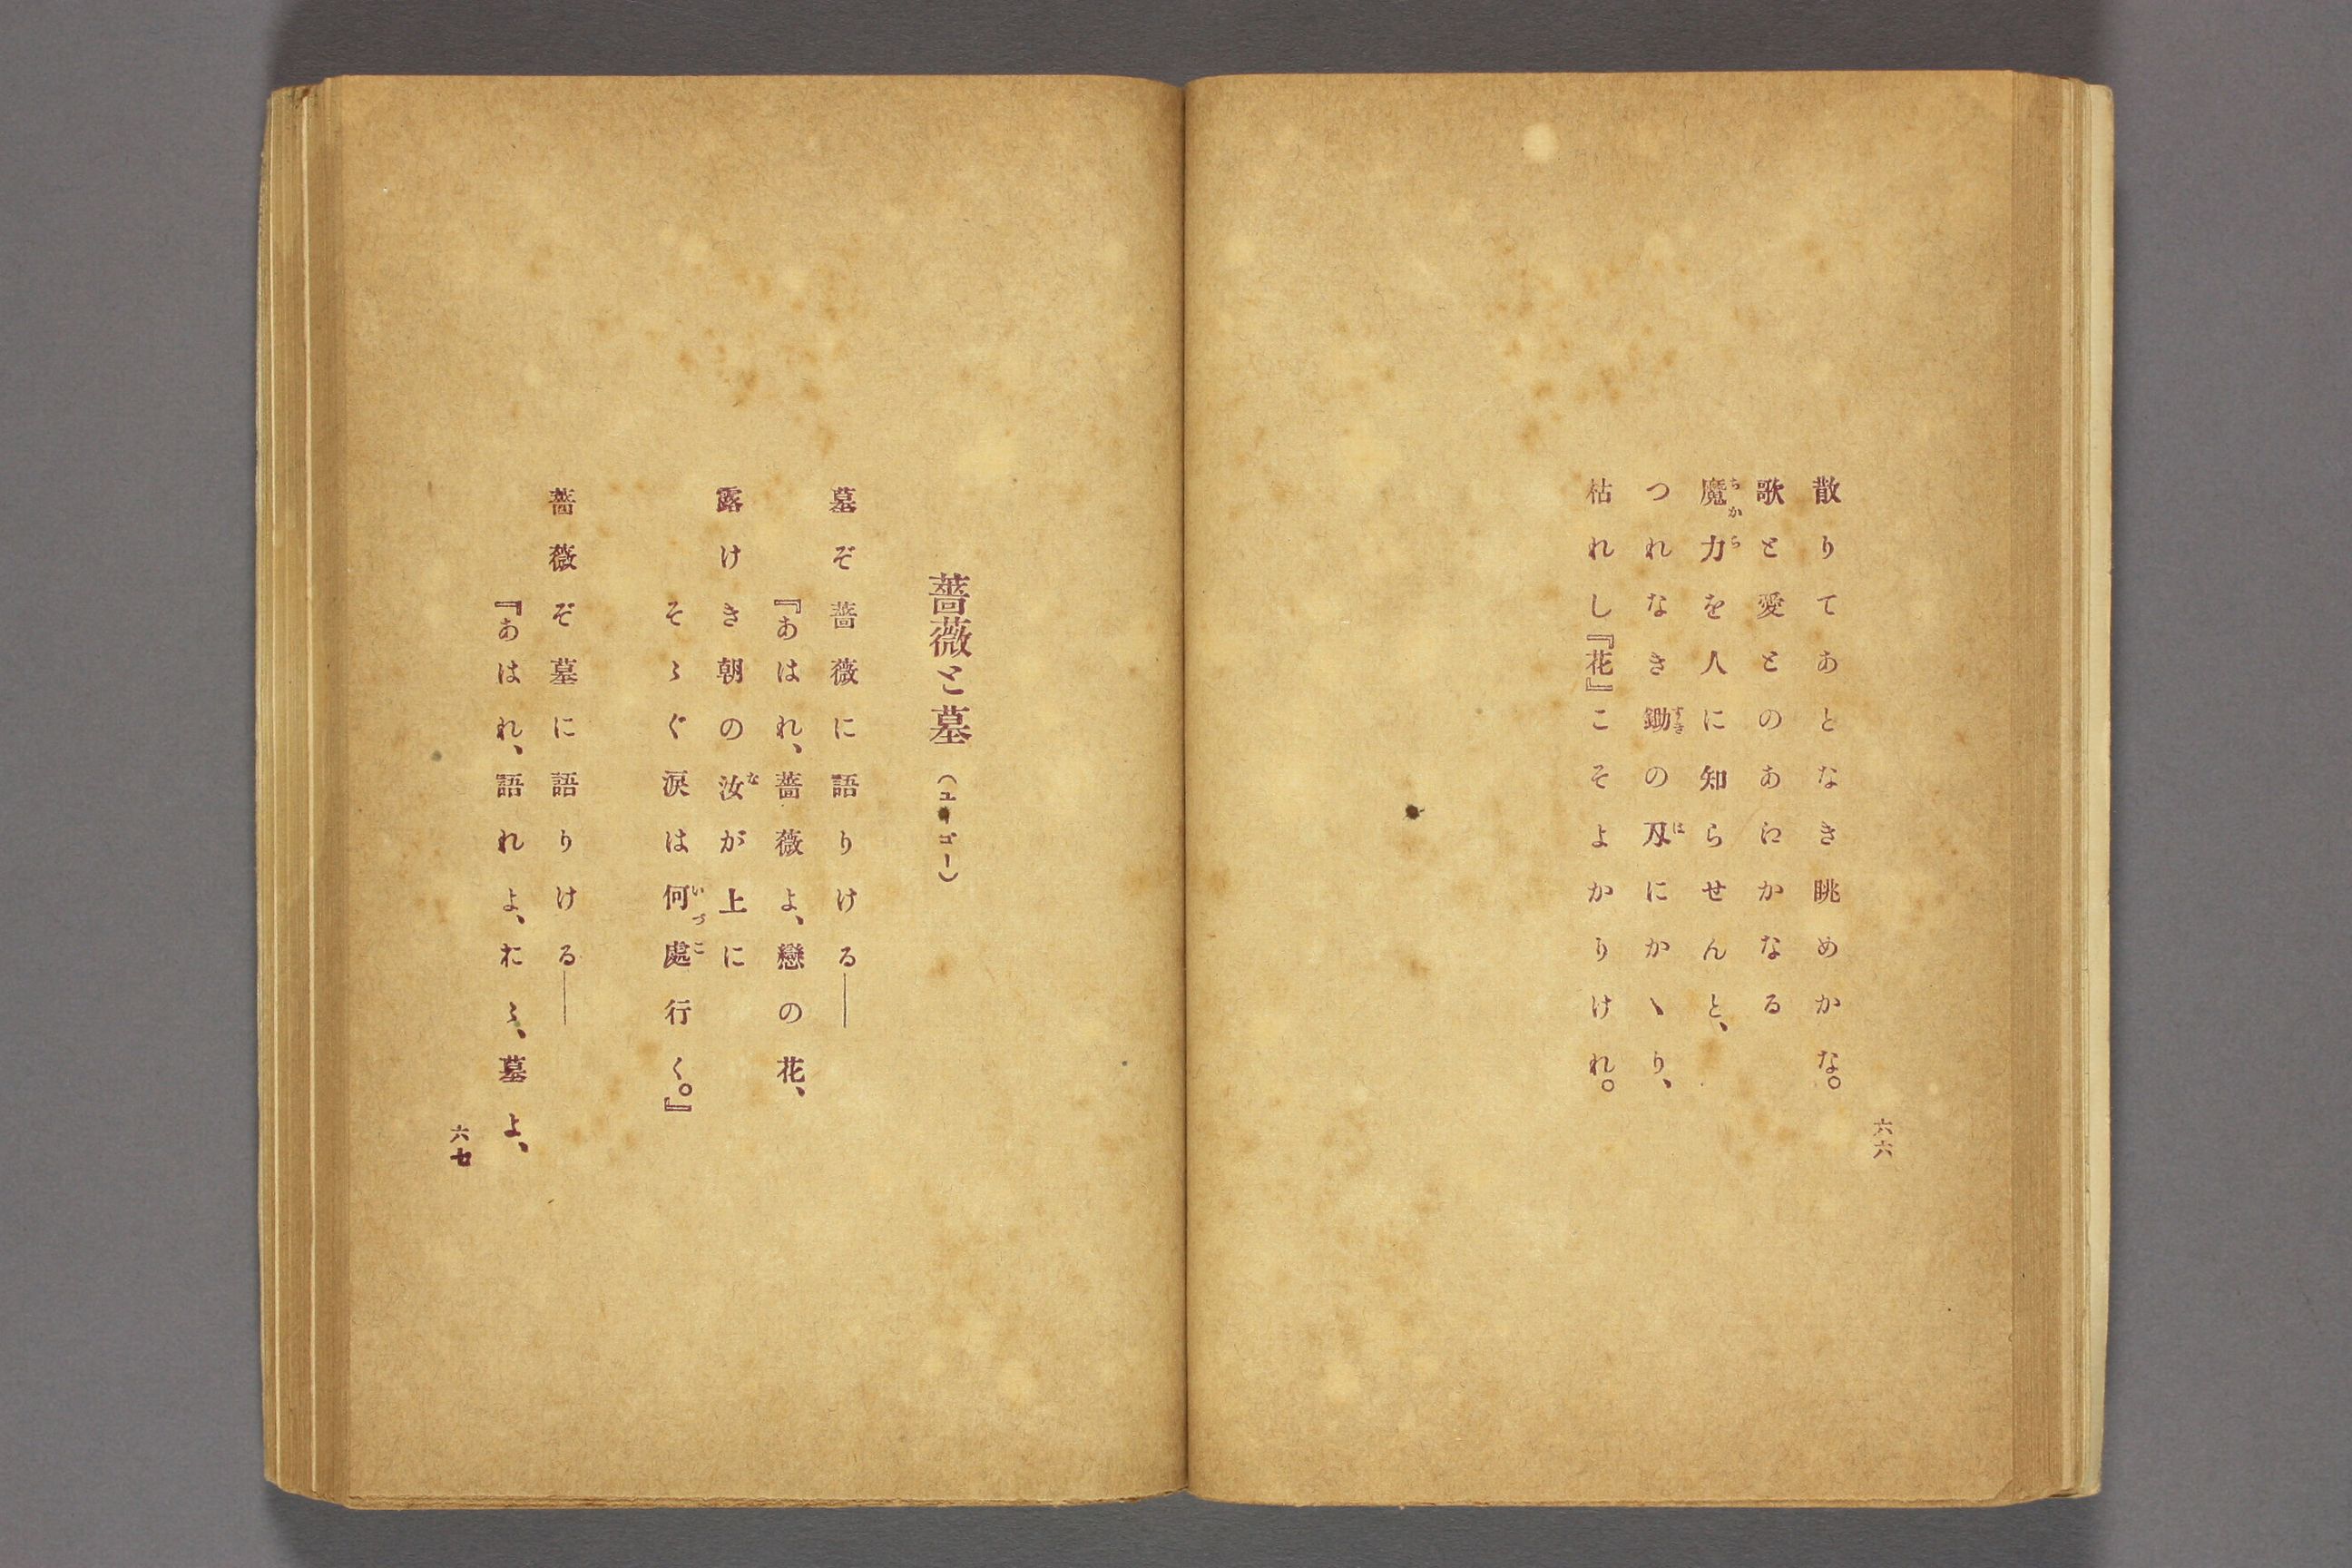 六六
散りてあとなき眺めかな。
歌と愛とのあえかなる
魔力を人に知らせんと、
ちから
つれなき鋤の刄にかゝり、
すき
は
枯れし『花』こそよかりけれ。
薔薇と墓(ユーゴー)
墓ぞ薔薇に語りける――
『あはれ、薔薇よ、戀の花、
露けき朝の汝が上に
な
そゝぐ涙は何處行く。』
いづこ
薔薇ぞ墓に語りける――
『あはれ、語れよ、おゝ、墓よ、
六七